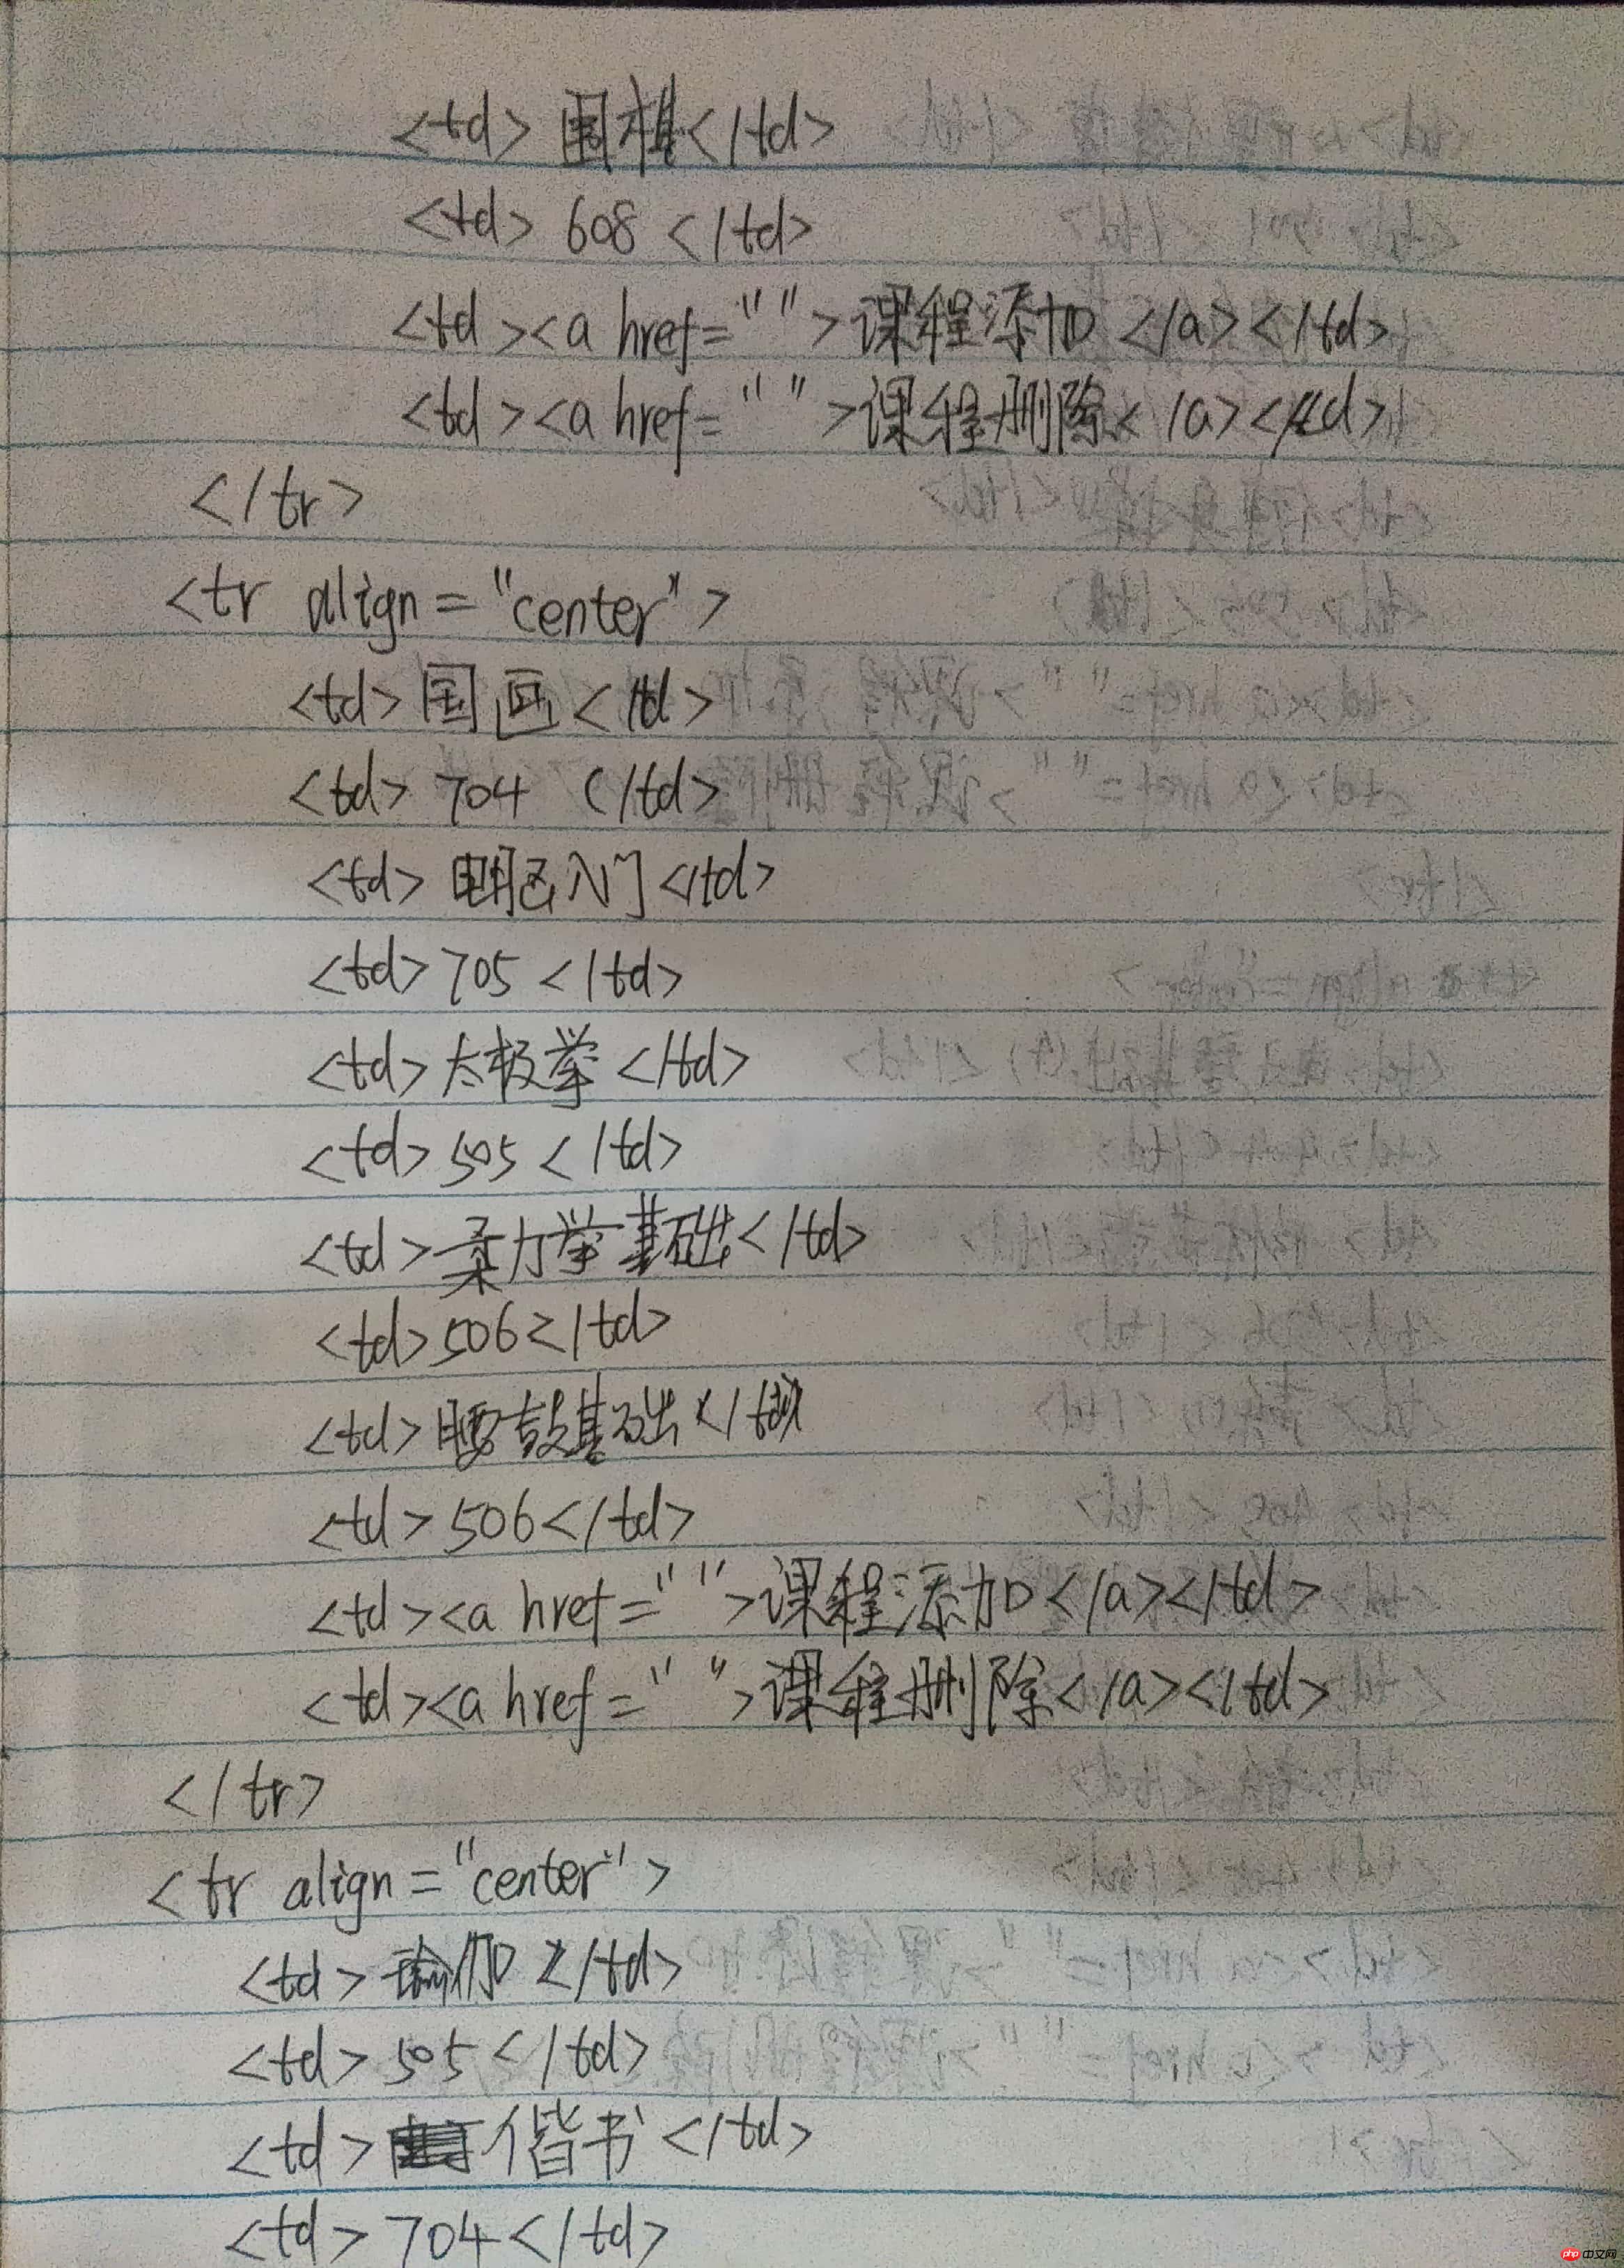 <td>围棋</td>
<td>608</td>
<td><a href="">课程添加</a></td>
<td><a href="">课程删除</a></td>
</tr>
<tr align="center">
<td>国画</td>
<td>704</td>
<td>电钢入门</td>
<td>705</td>
<td>太极拳</td>
<td>505</td>
<td>柔力拳基础</td>
<td>506</td>
<td>腰鼓基础</td>
<td>506</td>
<td><a href="">课程添加</a></td>
<td><a href="">课程删除</a></td>
</tr>
<tr align="center">
<td>瑜伽</td>
<td>505</td>
<td>偕书</td>
<td>704</td>
php 中文网